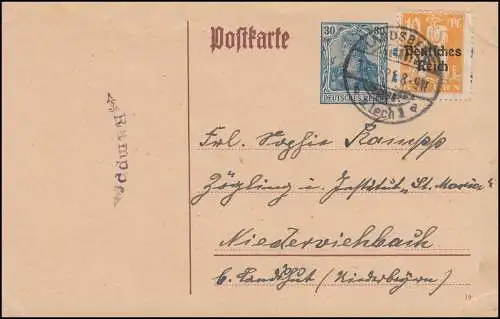 Postkarte
30 30
DEUTSCHES REICH
10 Pf
Deutsches
Reich
LANDSBERG
8-9N
Lech 1 a
Kampp
Frl. Sophie Kampp
Zögling im Institut „St. Maria“
Niederviehbach
b. Landshut (Niederbayern)
19